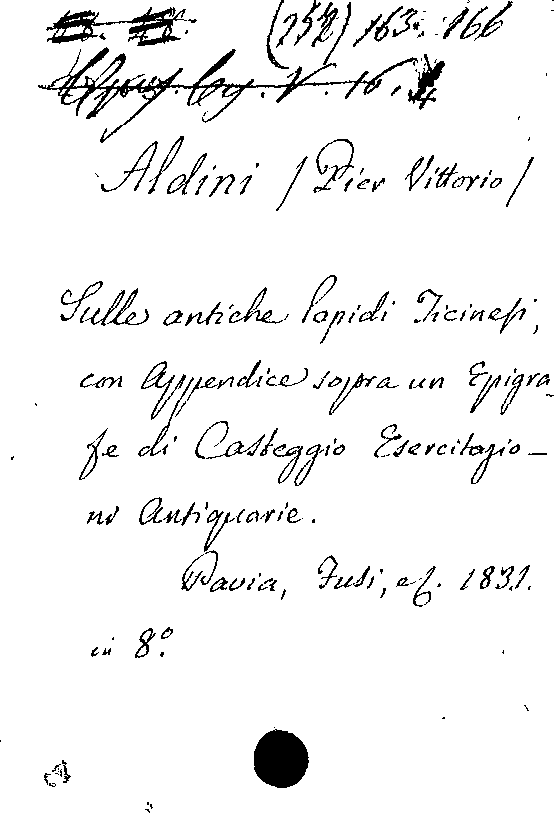 (252) 163. 166
V. 16.
Aldini / Pier Vittorio /
Sulle antiche lapidi Ticinesi,
con Appendice sopra un Epigra-
fe di Casteggio Esercitazio-
ni Antiquarie.
Pavia, Fusi, e C. 1831.
in 8º.